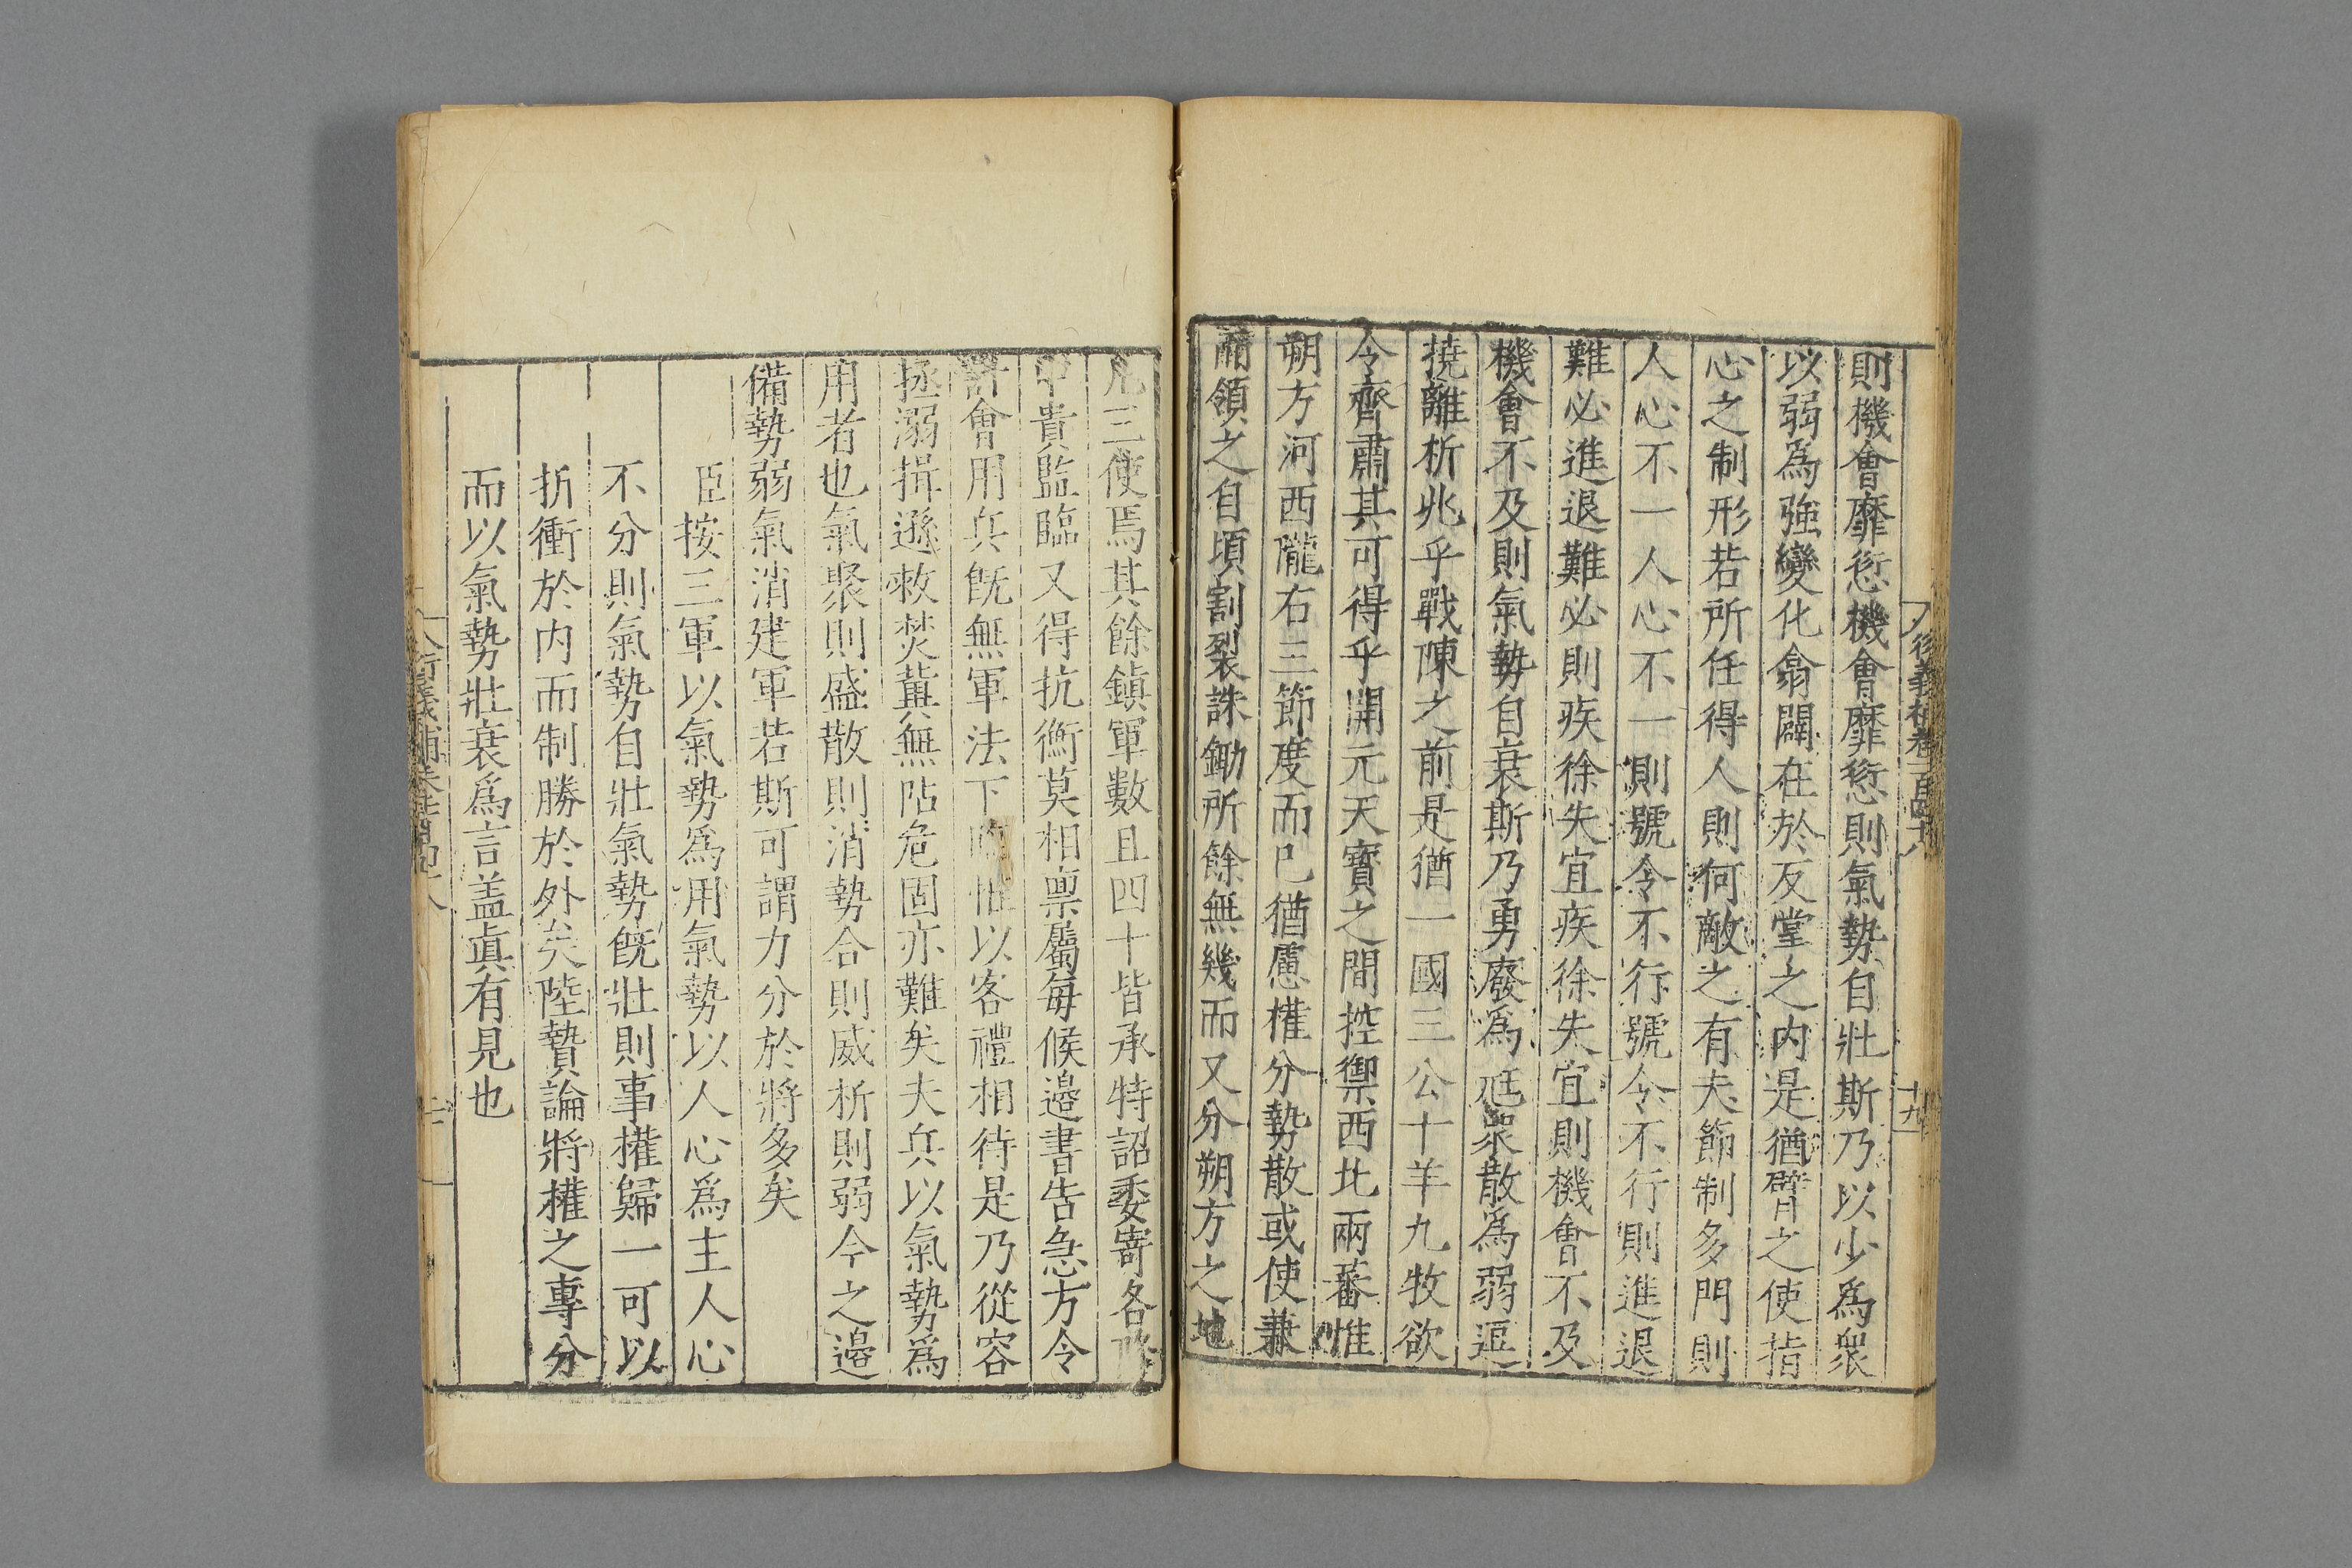 則機會靡愆機會靡愆則氣勢自壯斯乃以少爲衆
以弱爲強變化翕闢在於反堂之内是猶臂之使指
心之制形若所任得人則何敵之有夫節制多門則
人心不一人心不一則號令不行號令不行則進退
難必進退難必則疾徐失宜疾徐失宜則機會不及
機會不及則氣勢自衰斯乃勇廢爲尫衆散爲弱逗
撓離析兆乎戰陳之前是猶一國三公十羊九牧欲
令齊肅其可得乎開元天寶之間控禦西北兩蕃惟
朔方河西隴右三節度而巳猶慮權分勢散或使兼
而領之自頃割裂誅鋤所餘無幾而又分朔方之地
凡三使焉其餘鎭軍數且四十皆承特詔委寄各降
中貴監臨又得抗衡莫相禀屬每候邉書告急方令
計會用兵旣無軍法下臨惟以客禮相待是乃從容
拯溺揖遜救焚冀無阽危固亦難矣夫兵以氣勢爲
用者也氣聚則盛散則消勢合則威析則弱今之邉
備勢弱氣消建軍若斯可謂力分於將多矣
臣按三軍以氣勢爲用氣勢以人心爲主人心
不分則氣勢自壯氣勢旣壯則事權歸一可以
折衝於内而制勝於外矣陸贄論將權之專分
而以氣勢壯衰爲言盖眞有見也